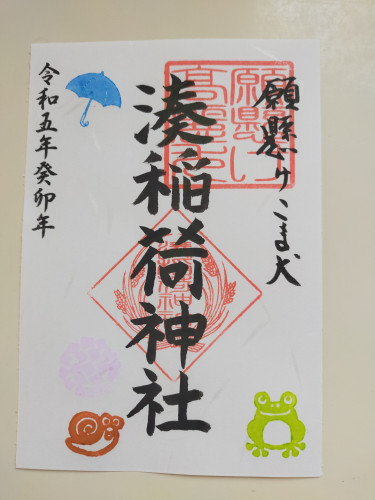 願懸けこま犬
湊稲荷神社
令和五年癸卯年